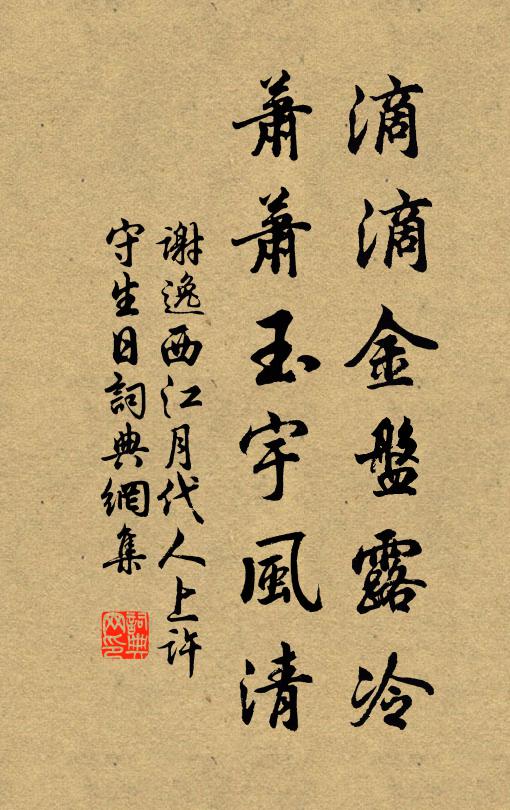 滴滴金盤露冷
蕭蕭玉宇風清
謝逸西江月代人上許
守生日詞典網集
詞典
网印